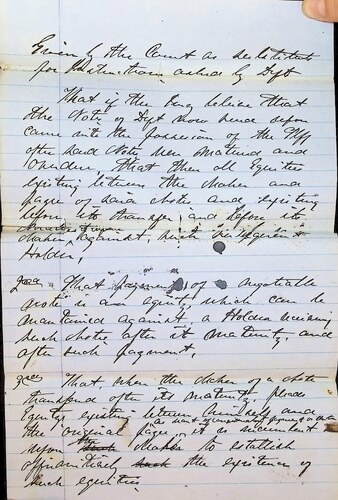 Given by the Court as substitute
for Instructions asked by Dft
That if the Jury believe that
the Note of Dft now sued upon
came into the possession of the Plff
after said Note was matured and
that then all Equities
existing between the Maker and
payee of said Note and existing
before its transfer, and before its
against, such
Holder,
2nd That "payment" of a negotiable
note is an equity, which can be
maintained against a Holder receiving
such Note after its maturity, and
after such payment.
That, when the Maker of a Note
transferred after its maturity, pleads
Equities existing between himself and
the original payee, it is incumbent
upon the Maker to establish
affirmatively such the existence of
such equities.